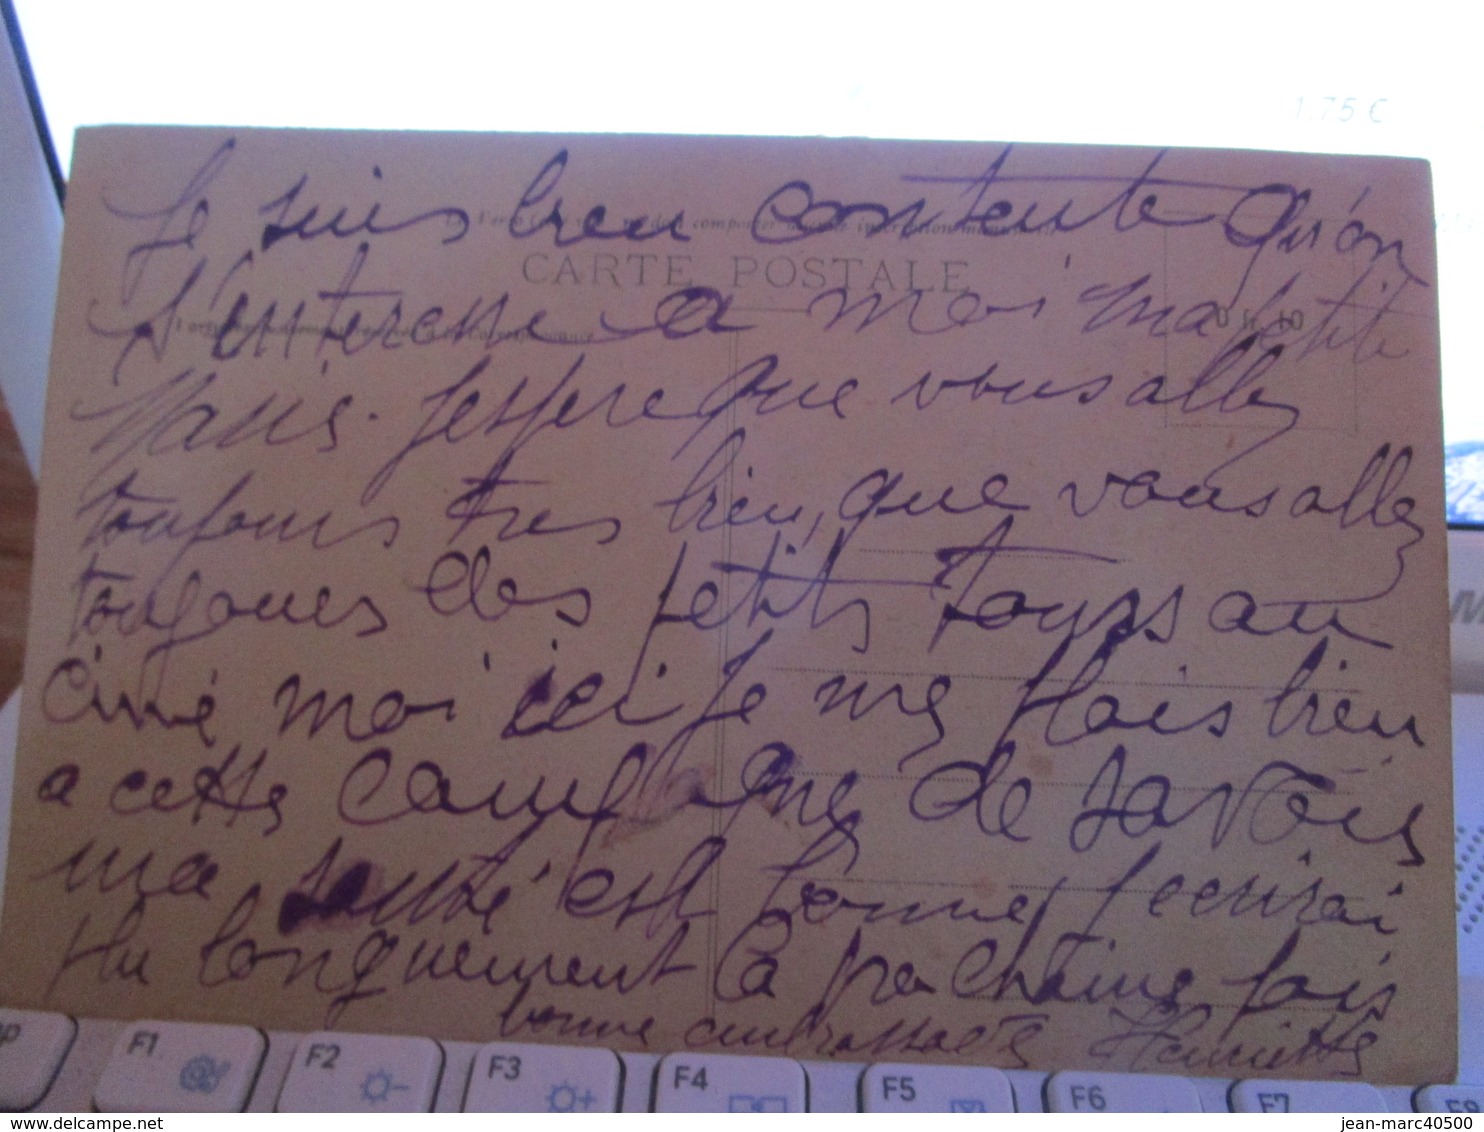 1.75 €
CARTE POSTALE
Je suis bien contente qu'on
s'interesse a moi ma petite
Mais. Jespere que vous allez
toujours tres bien, que vous allez
toujours des petits tours au
ciné moi ici je me plais bien
a cette campagne de Savoie
ma santé est bonne j ecrirai
plu longuement la prochaine fois
bonne embrassade Henriette
F1
F2
F3
F4
F5
F6
F7
F8
www.delcampe.net
jean-marc40500